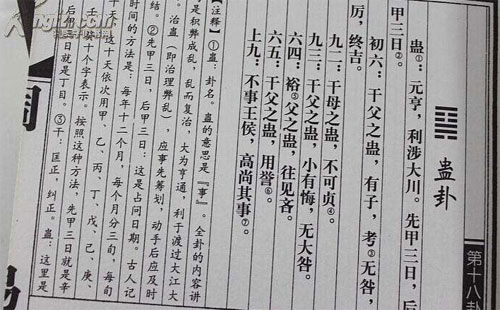 第十八卦
蛊卦
蛊①:元亨,利涉大川。先甲三日,后
甲三日②。
初六:干父之蛊,有子,考③无咎,
厉,终吉。
九二:干母之蛊,不可贞④。
九三:干父之蛊,小有悔,无大咎。
六四:裕⑤父之蛊,往见吝。
六五:干父之蛊,用誉⑥。
上九:不事王侯,高尚其事⑦。
【注释】①蛊:卦名。蛊的意思是『事』。全卦的内容讲
是积弊成乱,乱而复治,大为亨通,利于渡过大江大
。治蛊(即治理弊乱),应事先筹划,动手后应及时
结。②先甲三日,后甲三日:这是占问日期。古人记
时间的方法是:每年十二个月,每个月分三旬,每旬
十天,这十天依次用甲、乙、丙、丁、戊、己、庚、
壬、癸十个字表示。按照这种方法,先甲三日就是辛
后甲三日就是丁日。③干:匡正,纠正。蛊:这里是
周